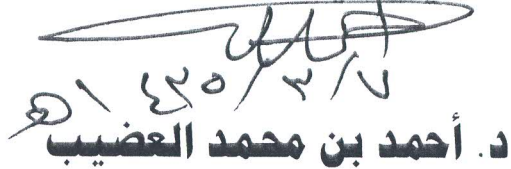 ١٤٣٥/٣/٧هـ
د. أحمد بن محمد العضيب